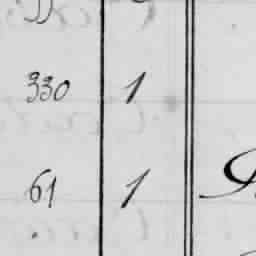 330 1
61 1